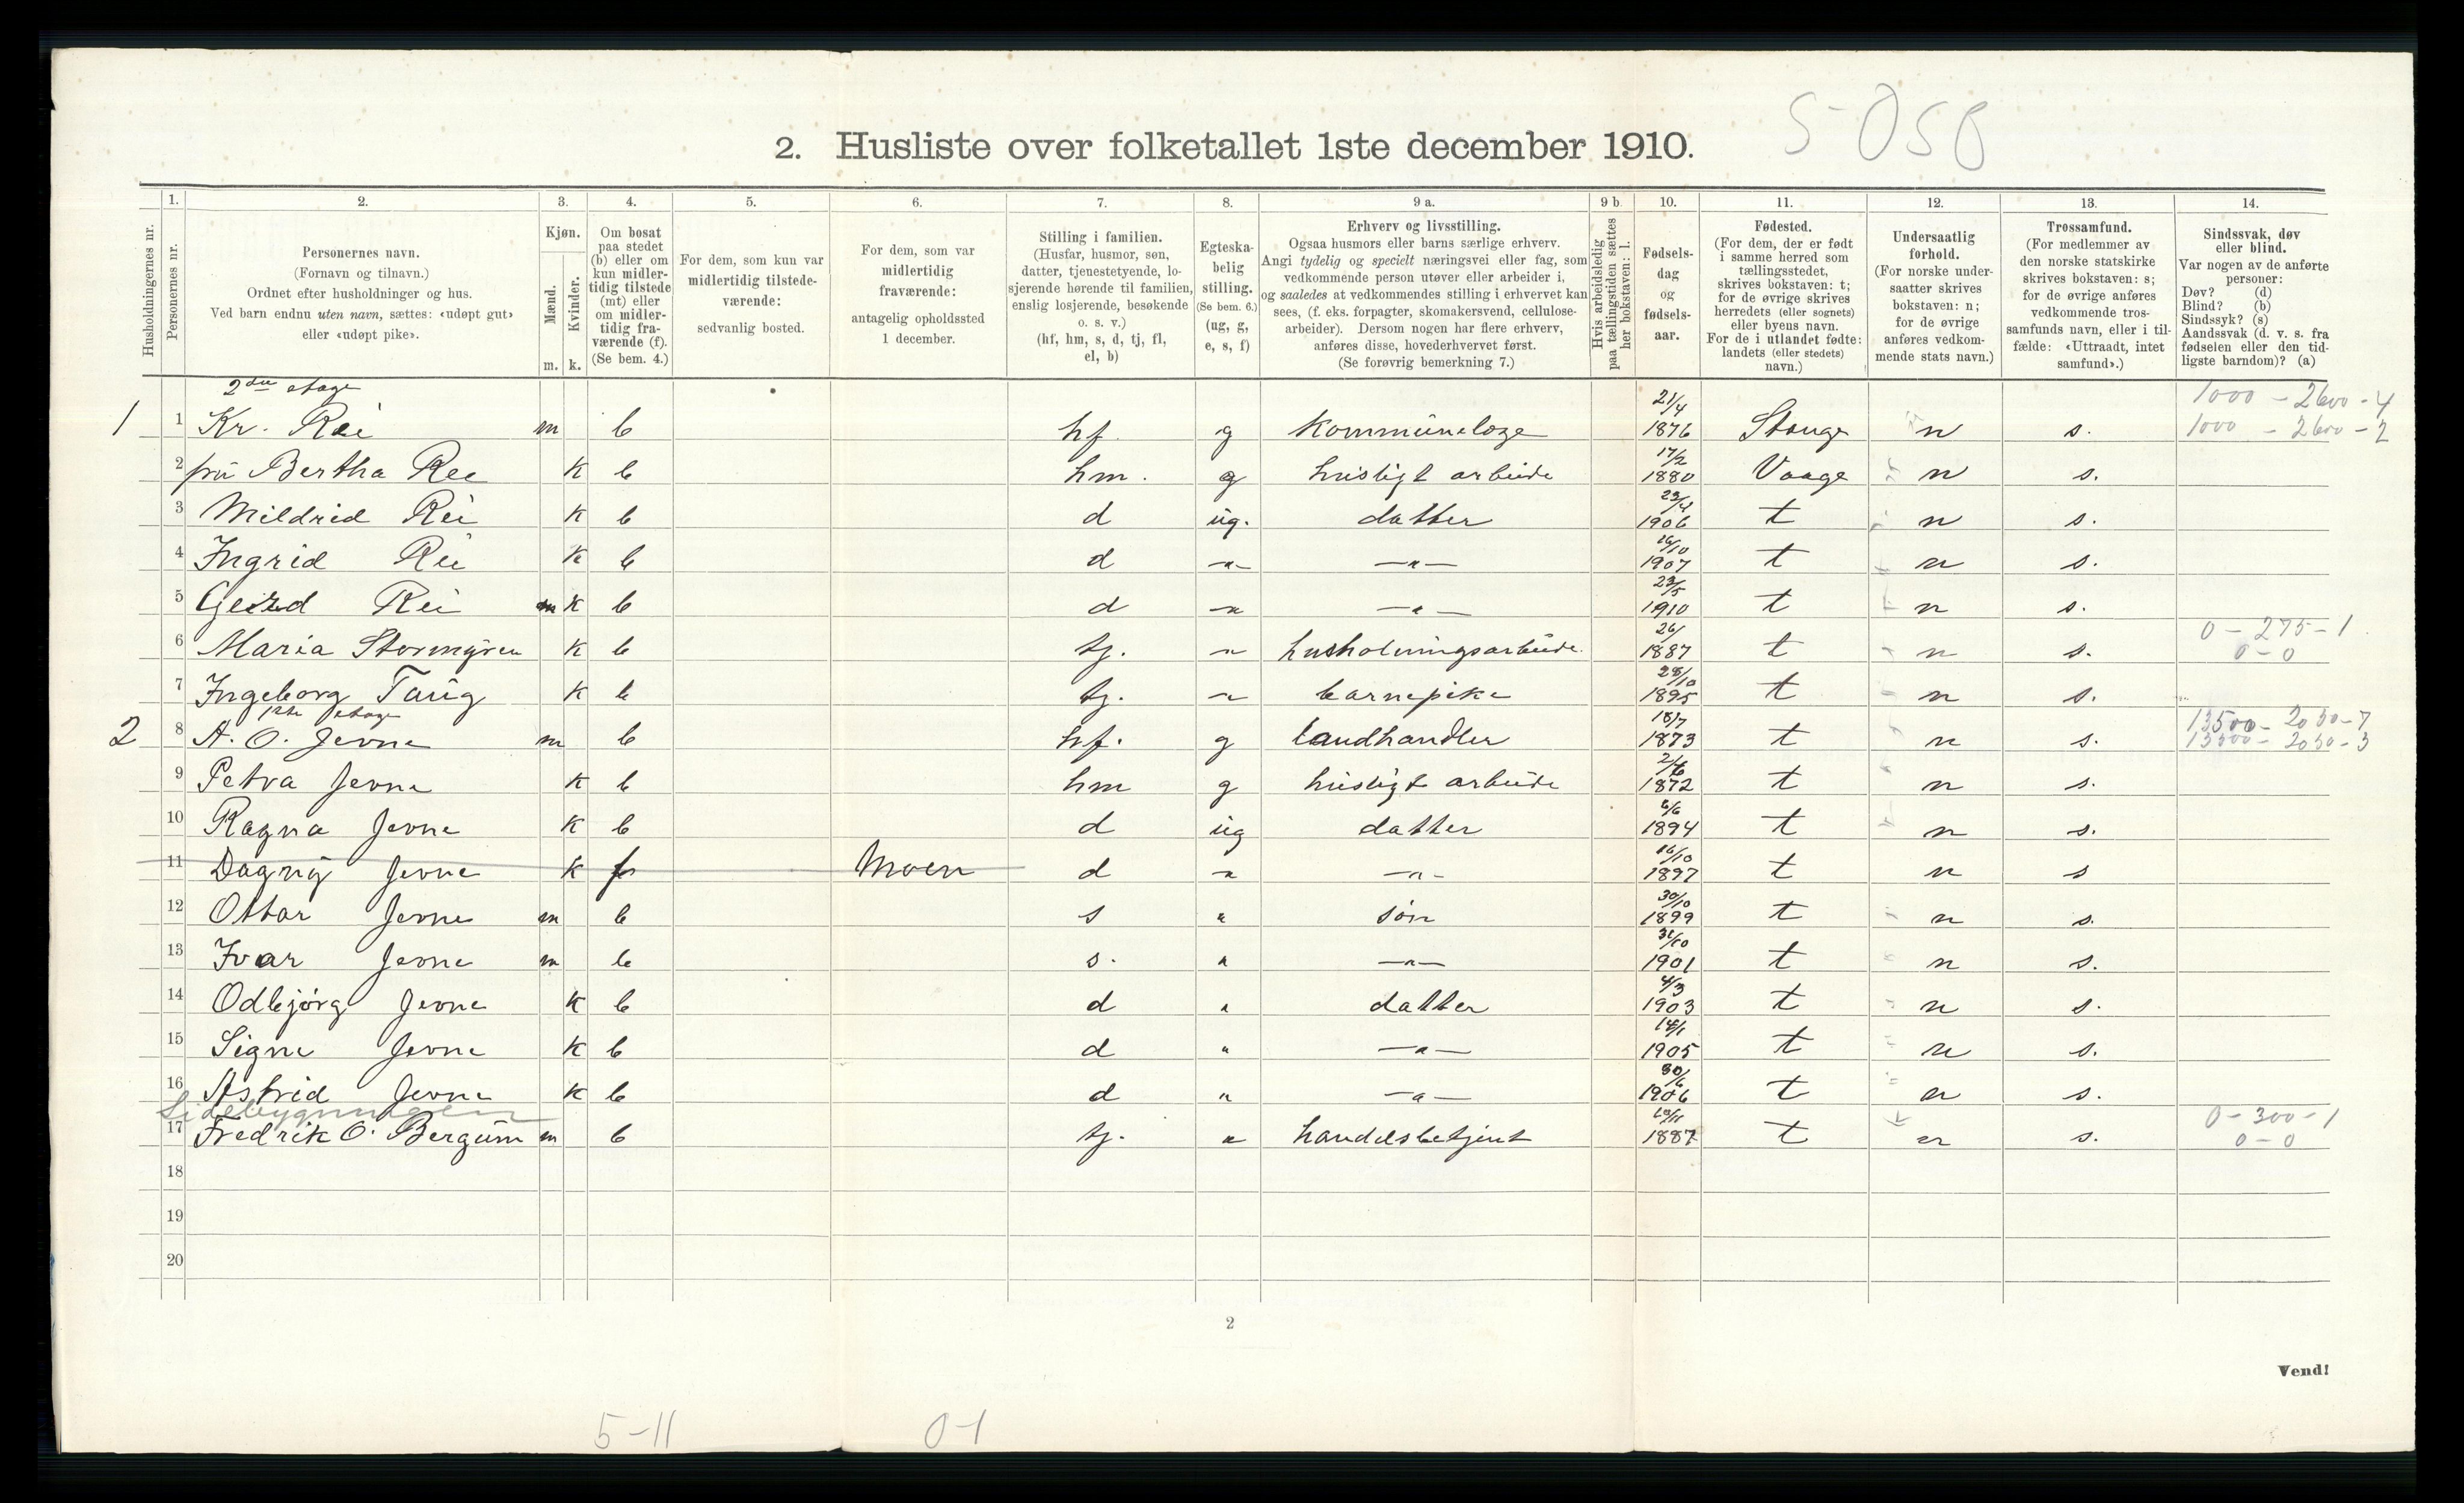 5-058
2. Husliste over folketallet 1ste december 1910.
Husholdningernes nr.
1. Personernes nr.
2. Personernes navn. (Fornavn og tilnavn.) Ordnet efter husholdninger og hus. Ved barn endnu uten navn, sættes: «udøpt gut» eller «udøpt pike».
3. Kjøn. Mænd. m. Kvinder. k.
4. Om bosat paa stedet (b) eller om kun midlertidig tilstede (mt) eller om midlertidig fraværende (f). (Se bem. 4.)
5. For dem, som kun var midlertidig tilstedeværende: sedvanlig bosted.
6. For dem, som var midlertidig fraværende: antagelig opholdssted 1 december.
7. Stilling i familien. (Husfar, husmor, søn, datter, tjenestetyende, losjerende hørende til familien, enslig losjerende, besøkende o. s. v.) (hf, hm, s, d, tj, fl, el, b)
8. Egteskabelig stilling. (Se bem. 6.) (ug, g, e, s, f)
9 a. Erhverv og livsstilling. Ogsaa husmors eller barns særlige erhverv. Angi tydelig og specielt næringsvei eller fag, som vedkommende person utøver eller arbeider i, og saaledes at vedkommendes stilling i erhvervet kan sees, (f. eks. forpagter, skomakersvend, cellulosearbeider). Dersom nogen har flere erhverv, anføres disse, hovederhvervet først. (Se forøvrig bemerkning 7.)
9 b. Hvis arbeidsledig paa tællingstiden sættes her bokstaven: l.
10. Fødselsdag og fødselsaar.
11. Fødested. (For dem, der er født i samme herred som tællingsstedet, skrives bokstaven: t; for de øvrige skrives herredets (eller sognets) eller byens navn. For de i utlandet fødte: landets (eller stedets) navn.)
12. Undersaatlig forhold. (For norske undersaatter skrives bokstaven: n; for de øvrige anføres vedkommende stats navn.)
13. Trossamfund. (For medlemmer av den norske statskirke skrives bokstaven: s; for de øvrige anføres vedkommende trossamfunds navn, eller i tilfælde: «Uttraadt, intet samfund».)
14. Sindssvak, døv eller blind. Var nogen av de anførte personer: Døv? (d) Blind? (b) Sindssyk? (s) Aandssvak (d. v. s. fra fødselen eller den tidligste barndom)? (a)
2den etage
1000 - 2600 - 4
1 1 Kr. Rei m b hf. g kommunelæge 21/4 1876 Stange n s. 1000 - 2600 - 2
2 fru Bertha Ree k b hm. g husligt arbeide 17/2 1880 Vaage n s.
3 Mildrid Rei k b d ug. datter 23/4 1906 t n s.
4 Ingrid Rei k b d -"- -"- 26/10 1907 t n s.
5 Gerd Rei k b d -"- -"- 23/5 1910 t n s.
0 - 275 - 1
6 Maria Stormyren k b tj. " husholdningsarbeide. 26/ 1887 t n s. 0 - 0
7 Ingeborg Taug k b tj. " barnepike 28/10 1895 t n s.
1ste etage
13500 - 2050 - 7
2 8 A. O. Jevne m b hf. g landhandler 18/7 1873 t n s. 13500 - 2050 - 3
9 Petra Jevne k b hm g husligt arbeide 2/6 1872 t n s.
10 Ragna Jevne k b d ug datter 6/6 1894 t n s.
11 Dagny Jevne k f Moen d " -"- 16/10 1897 t n s
12 Ottar Jevne m b s " søn 30/10 1899 t n s.
13 Ivar Jevne m b s. " -"- 31/10 1901 t n s.
14 Odbjørg Jevne k b d " datter 4/3 1903 t n s.
15 Signe Jevne k b d " -"- 14/1 1905 t n s.
16 Astrid Jevne k b d " -"- 30/6 1906 t n s.
Sidebygningen
0 - 300 - 1
17 Fredrik O. Bergum m b tj. " handelsbetjent 10/11 1887 t n s. 0 - 0
18
19
20
2
Vend!
5-11 0-1